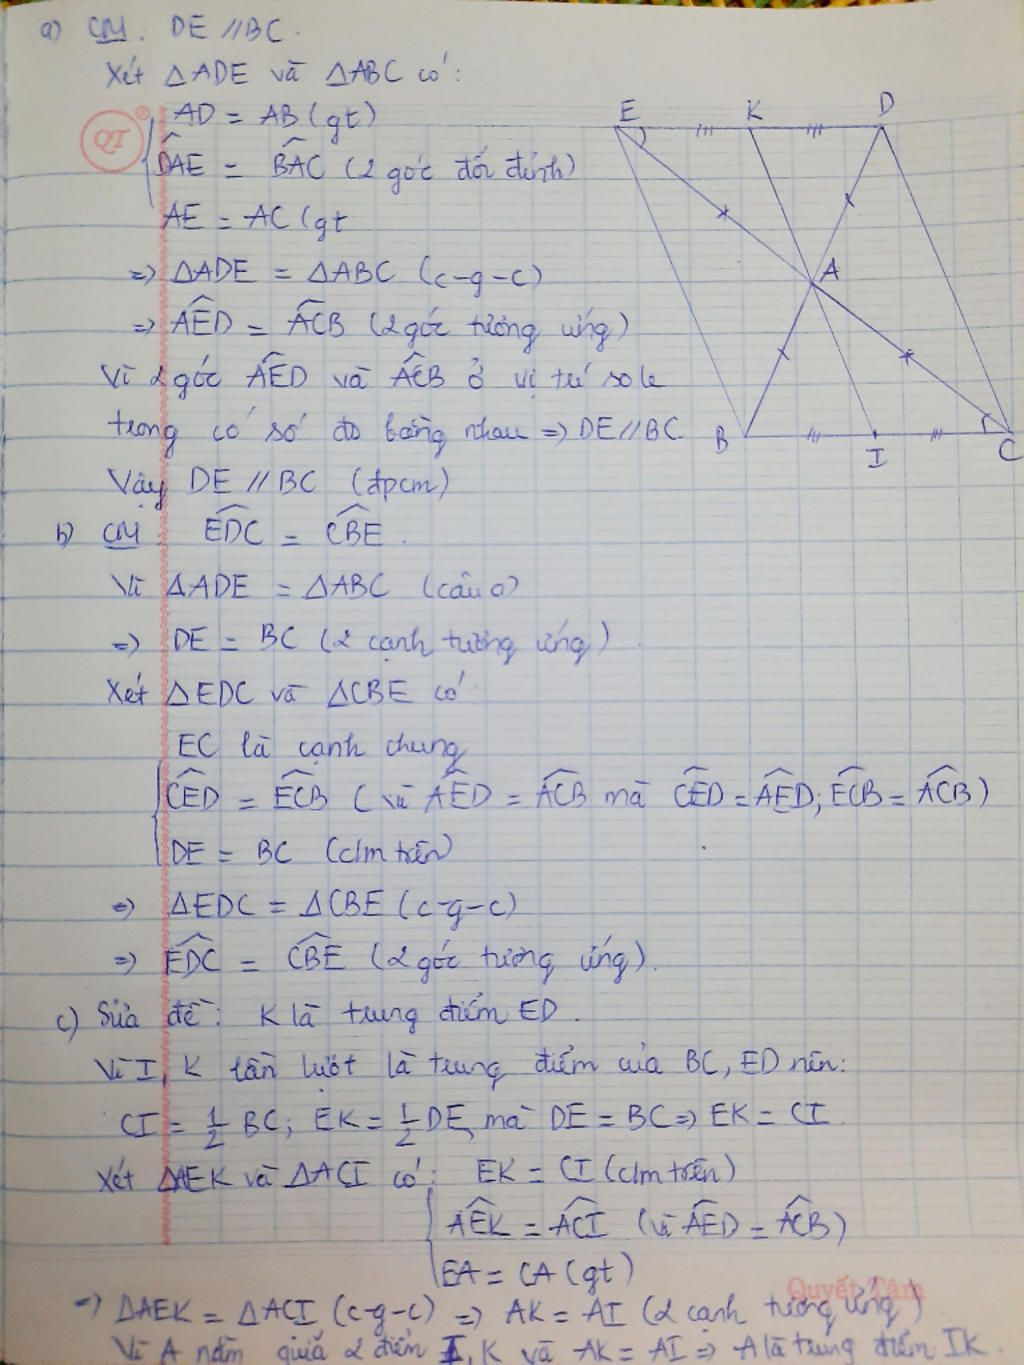 a) CM. DE // BC.
Xét △ADE và △ABC có:
AD = AB (gt)
DAE = BAC (2 góc đối đỉnh)
AE = AC (gt
=> △ADE = △ABC (c-g-c)
=> AED = ACB (2 góc tương ứng)
Vì 2 góc AED và ACB ở vị trí so le
trong có số đo bằng nhau => DE // BC
Vậy DE // BC (đpcm)
E K D
A
B I C
b) CM: EDC = CBE.
Vì △ADE = △ABC (câu a)
=> DE = BC (2 cạnh tương ứng).
Xét △EDC và △CBE có
EC là cạnh chung
CED = ECB (vì AED = ACB mà CED = AED; ECB = ACB)
DE = BC (c/m trên)
=> △EDC = △CBE (c-g-c)
=> EDC = CBE (2 góc tương ứng).
c) Sửa đề: K là trung điểm ED.
Vì I, K lần lượt là trung điểm của BC, ED nên:
CI = 1/2 BC; EK = 1/2 DE, mà DE = BC => EK = CI.
Xét △AEK và △ACI có: EK = CI (c/m trên)
AEK = ACI (vì AED = ACB)
EA = CA (gt)
Quyết Tâm
=> △AEK = △ACI (c-g-c) => AK = AI (2 cạnh tương ứng)
Vì A nằm giữa 2 điểm I, K và AK = AI => A là trung điểm IK.
QT